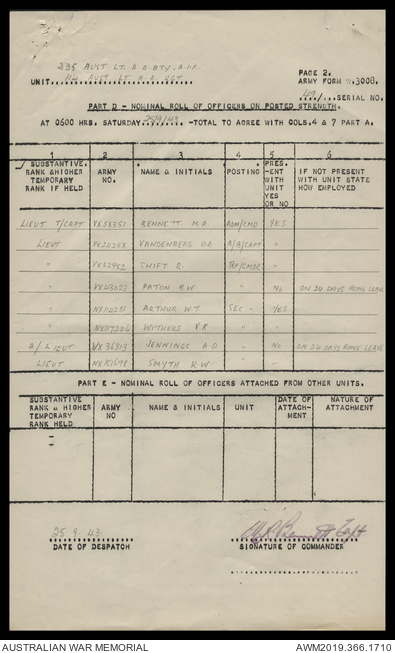 235 AUST LT. A A BTY. AIF
UNIT 114 AUST. LT. A.A. RGT.
PAGE 2.
ARMY FORM W.3008.
49/ SERIAL NO.
PART D - NOMINAL ROLL OF OFFICERS ON POSTED STRENGTH.
AT 0600 HRS. SATURDAY 25/9/43 -TOTAL TO AGREE WITH COLS.4 & 7 PART A.
1 2 3 4 5 6
SUBSTANTIVE. RANK & HIGHER TEMPORARY RANK IF HELD
ARMY NO.
NAME & INITIALS
POSTING
PRES-ENT WITH UNIT YES OR NO
IF NOT PRESENT WITH UNIT STATE HOW EMPLOYED
LIEUT T/CAPT VX58351 BENNETT M.R. ADM/CMD YES
LIEUT VANDENBERG A/B/CAPT "
" SWIFT R. TRP/CMDR "
" PATON B.W. " NO ON 24 DAYS HOME LEAVE
" ARTHUR W.T. SEC - YES
" WITHERS V.R. " "
A/LIEUT VX36313 JENNINGS A.D " NO ON 24 DAYS HOME LEAVE
LIEUT SMYTH K.W " "
PART E - NOMINAL ROLL OF OFFICERS ATTACHED FROM OTHER UNITS.
SUBSTANTIVE RANK & HIGHER TEMPORARY RANK HELD
ARMY NO
NAME & INITIALS
UNIT
DATE OF ATTACH-MENT
NATURE OF ATTACHMENT
25.9.43
DATE OF DESPATCH
Bennett Capt
SIGNATURE OF COMMANDER
AUSTRALIAN WAR MEMORIAL
AWM2019.366.1710